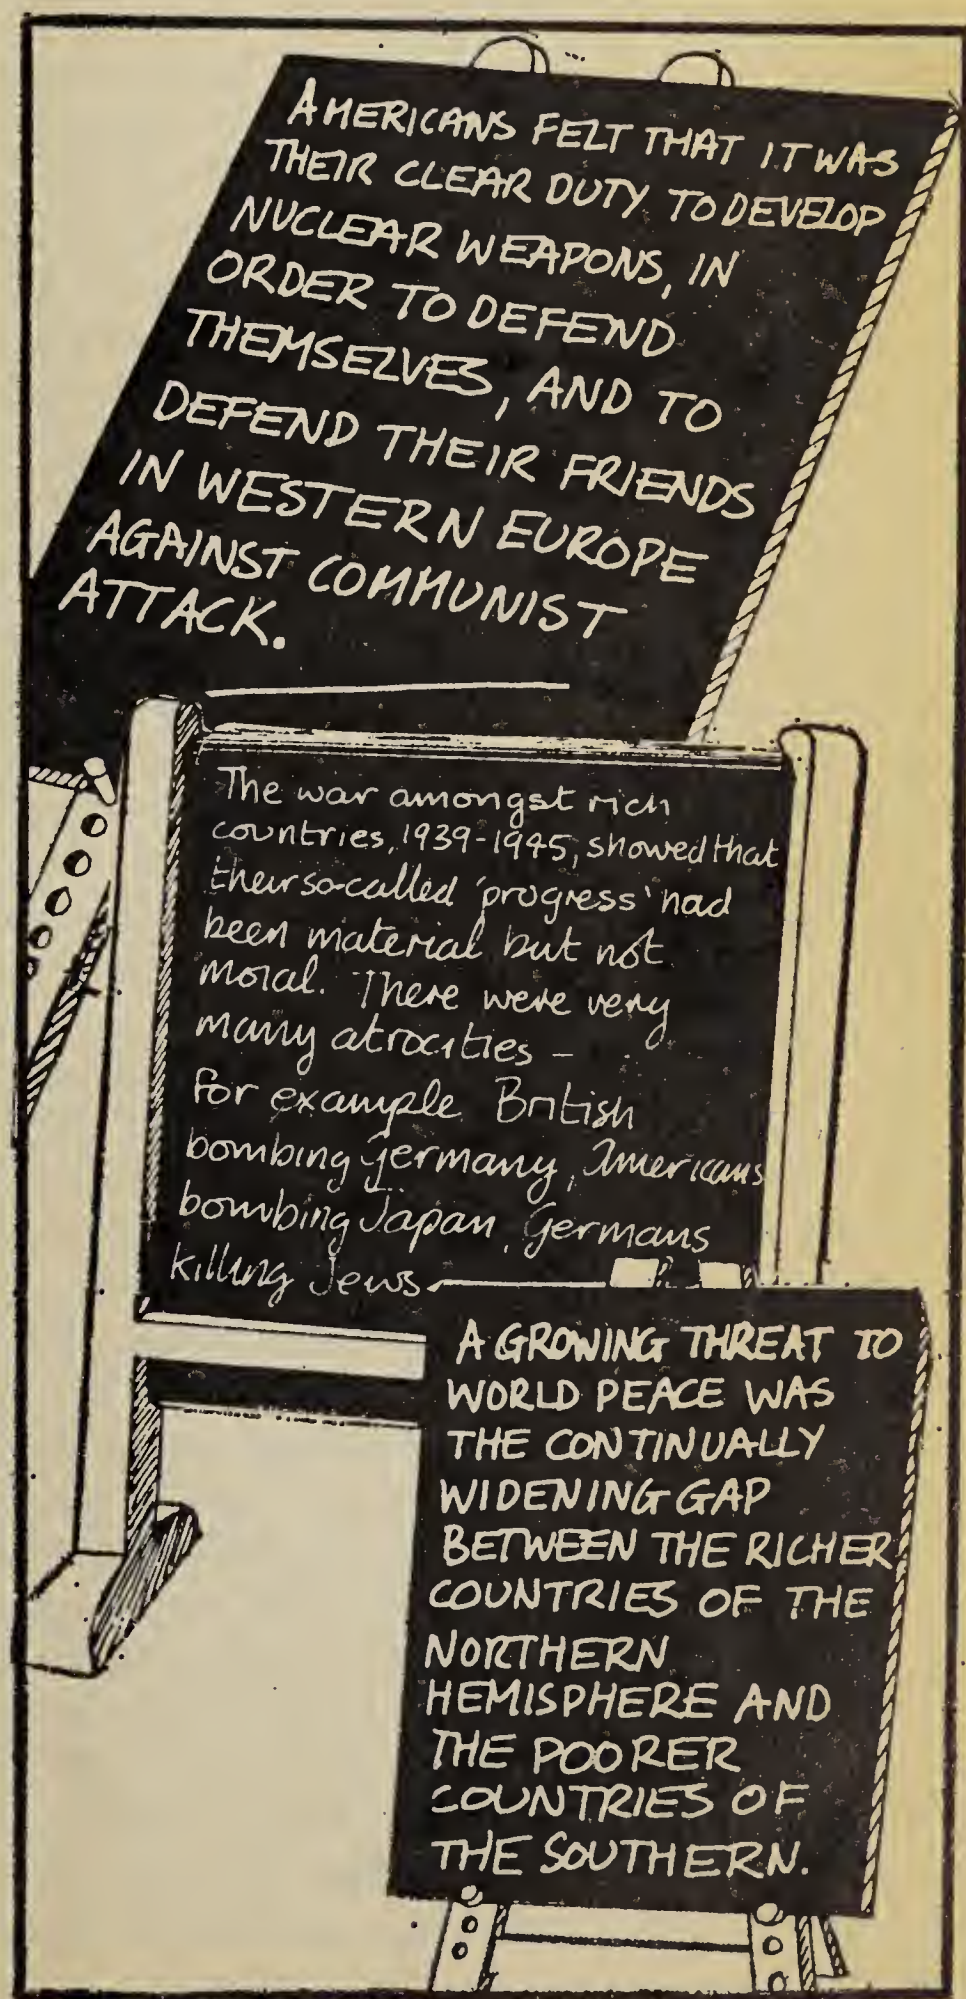 AMERICANS FELT THAT IT WAS
THEIR CLEAR DUTY TO DEVELOP
NUCLEAR WEAPONS, IN
ORDER TO DEFEND
THEMSELVES, AND TO
DEFEND THEIR FRIENDS
IN WESTERN EUROPE
AGAINST COMMUNIST
ATTACK.
The war amongst rich
countries, 1939-1945, showed that
their so-called 'progress' had
been material but not
moral. There were very
many atrocities -
for example British
bombing Germany, Americans
bombing Japan, Germans
killing Jews.
A GROWING THREAT TO
WORLD PEACE WAS
THE CONTINUALLY
WIDENING GAP
BETWEEN THE RICHER
COUNTRIES OF THE
NORTHERN
HEMISPHERE AND
THE POORER
COUNTRIES OF
THE SOUTHERN.